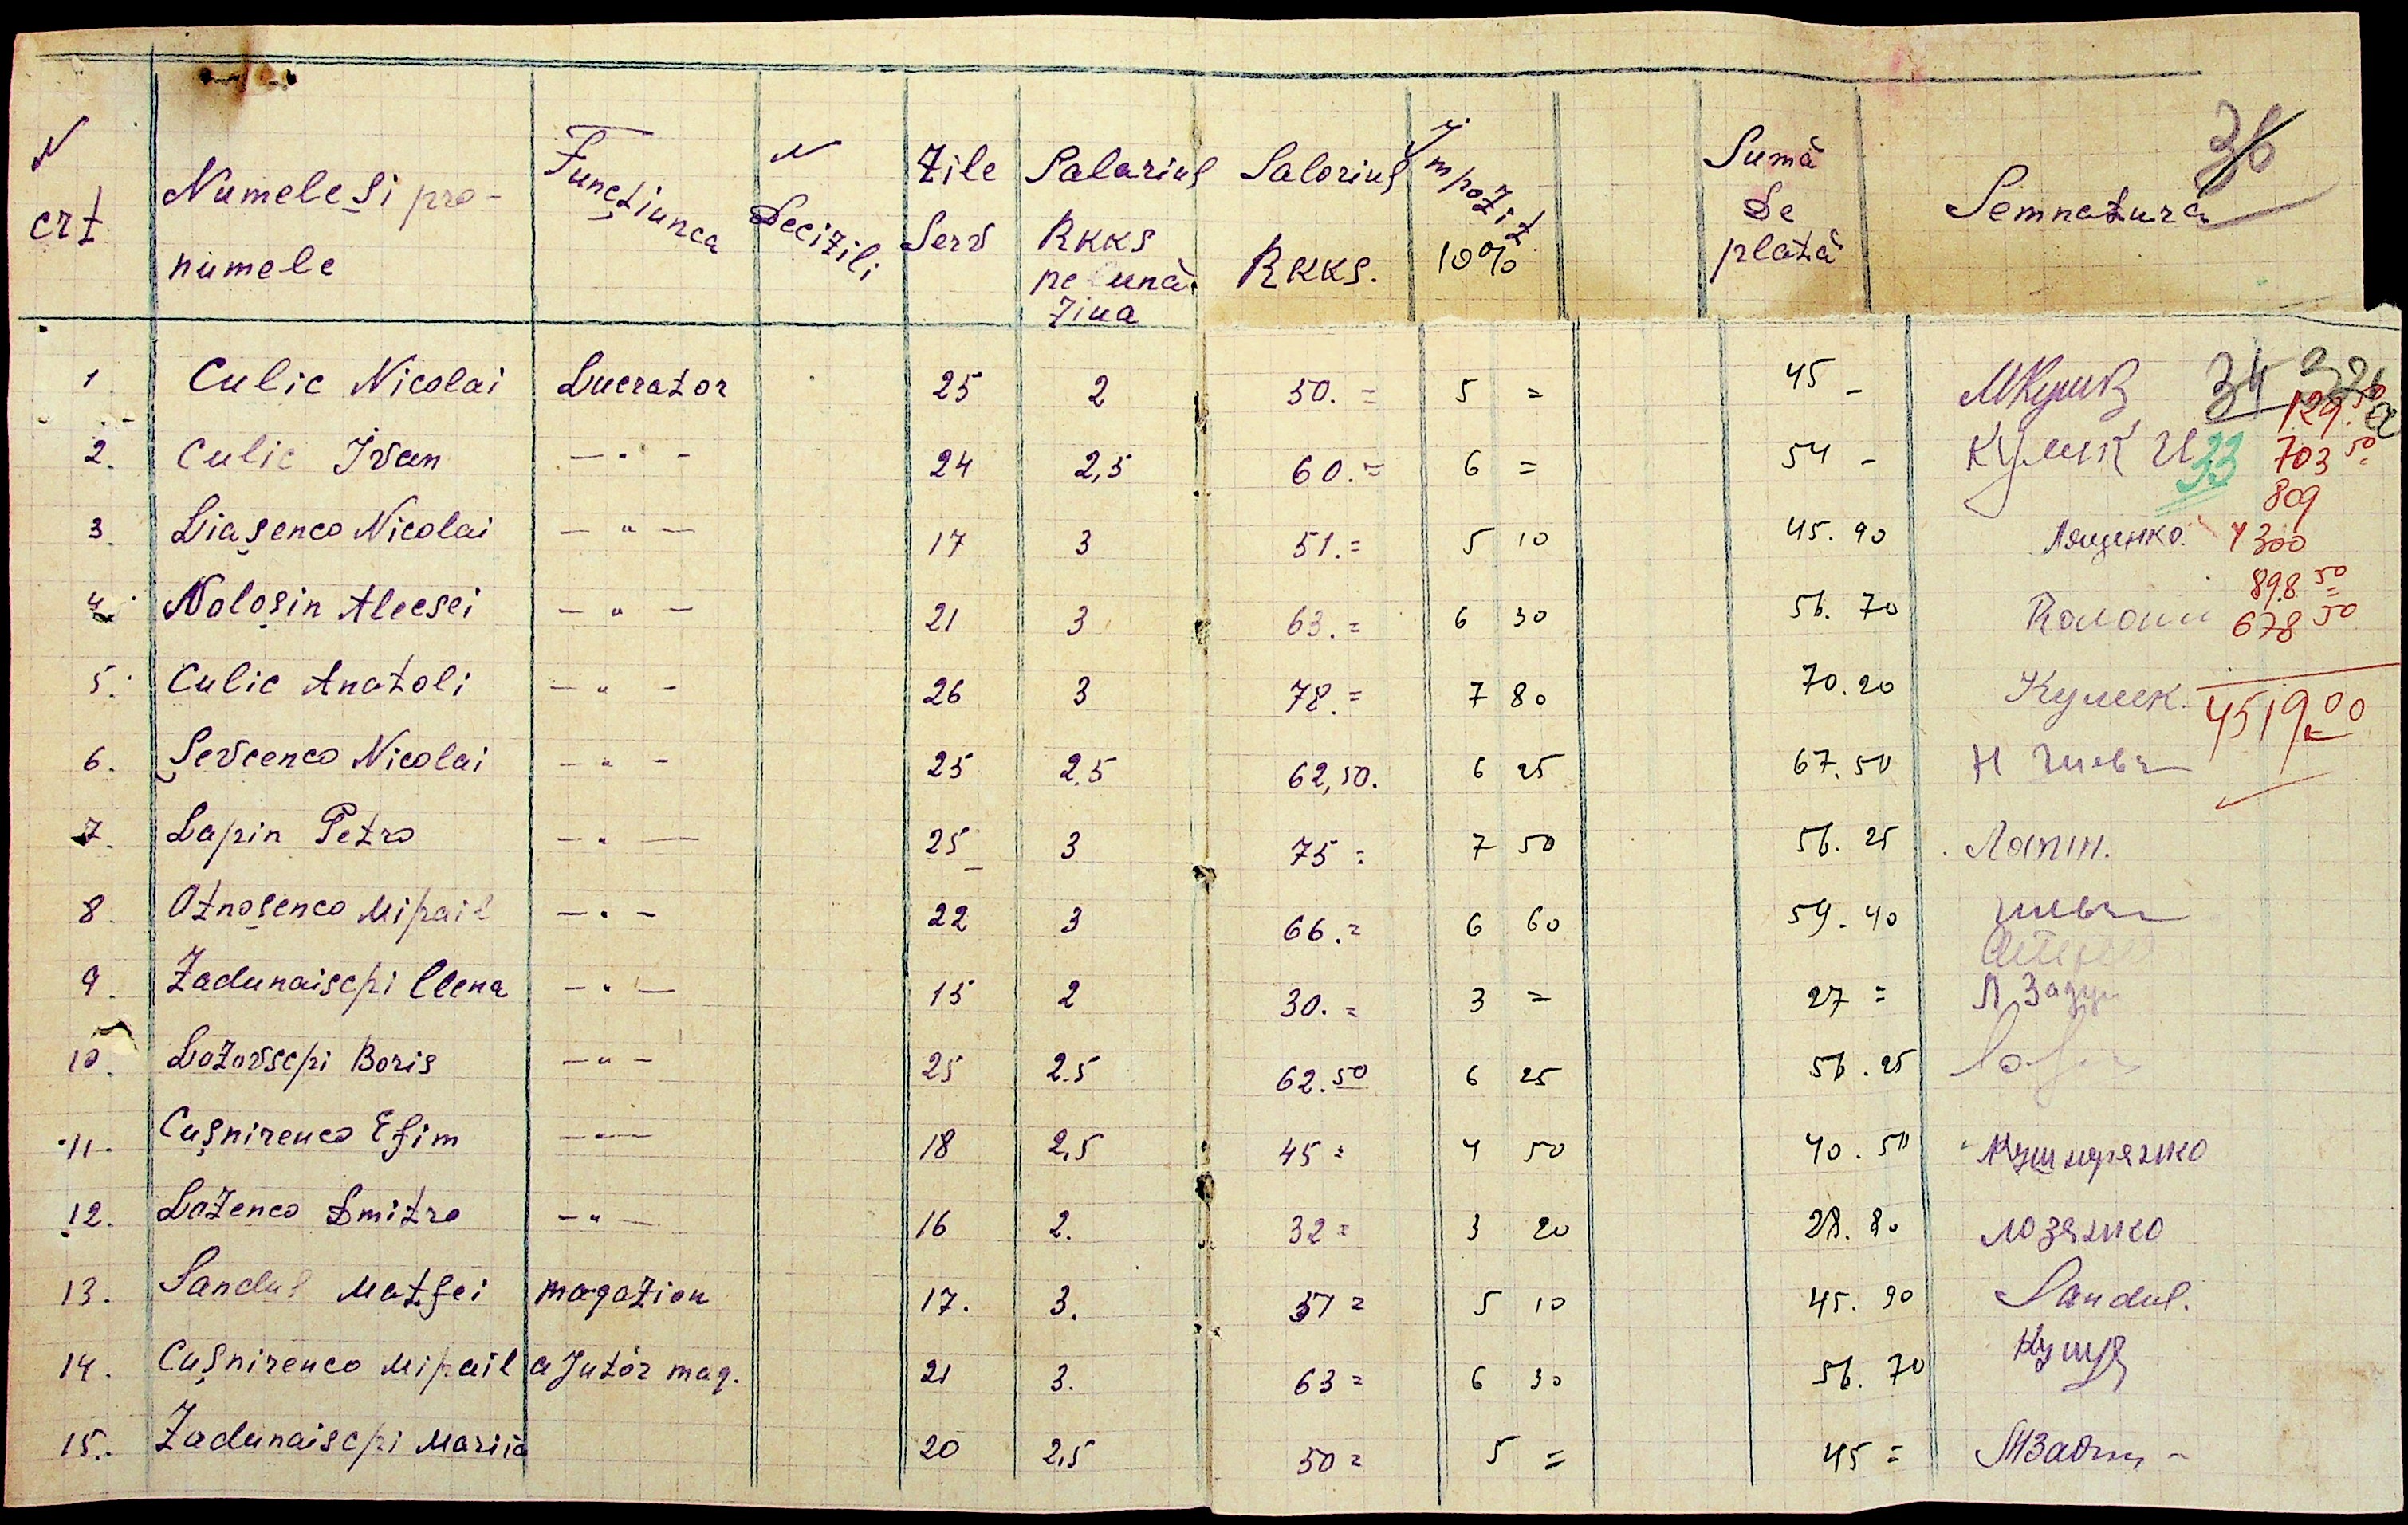 36
N crt Numele și pro-numele Funcțiunea N Decizili Zile Serv Salariul RKKS pe una ziua Saloriul RKKS. Impozit 10% Sumă De plată Semnatura
1 Culic Nicolai Lucrator 25 2 50.= 5 = 45 - 34
129.50
2. Culic Ivan —"— 24 2,5 60.= 6 = 54 - Кулик И 33 703 50
809
3. Liașenco Nicolai —"— 17 3 51.= 5 10 45.90 Лященко 1300
898 50
4. Noloșin Alecsei —"— 21 3 63.= 6 30 56.70 678 50
5. Culic Anatoli —"— 26 3 78.= 7 80 70.20 Кулик. 4519 00
6. Șevcenco Nicolai —"— 25 2.5 62,50. 6 25 67.50 Н
7. Lapin Petro —"— 25 3 75= 7 50 56.25 Лапин.
8. Otnoșenco Mihail —"— 22 3 66.= 6 60 59.40
9. Zadunaischi Elena —"— 15 2 30.= 3 = 27 = Л Задун
10. Lozovschi Boris —"— 25 2.5 62.50 6 25 56.25
11. Cușnirenco Efim —"— 18 2,5 45= 4 50 40.50 Кушнренко
12. Lozenco Dmitro —"— 16 2. 32= 3 20 28.80 лозенко
13. Sandul Matfei magazion 17. 3. 51= 5 10 45.90 Sandul.
14. Cușnirenco Mihail ajutor mag. 21 3. 63= 6 30 56.70
15. Zadunaischi Mariia 20 2,5 50= 5 = 45=